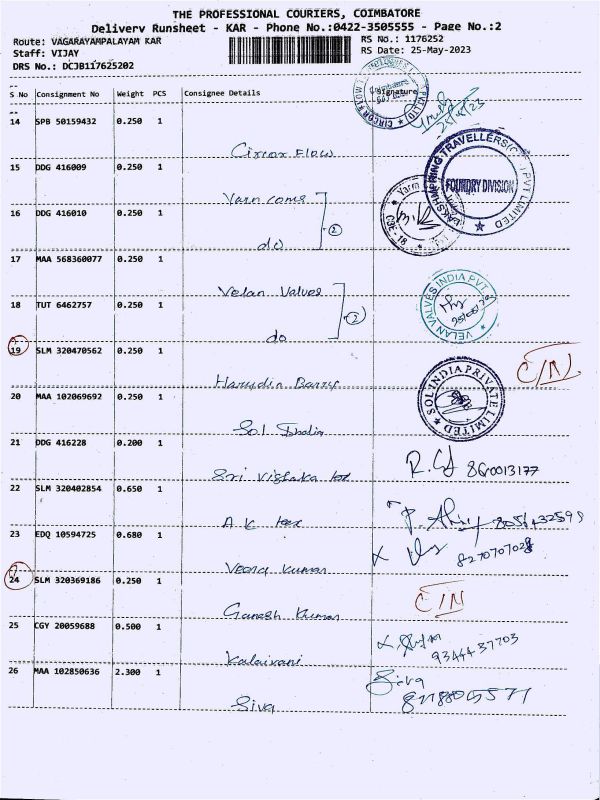 THE PROFESSIONAL COURIERS, COIMBATORE
Delivery Runsheet - KAR - Phone No.:0422-3505555 - Page No.:2
Route: VAGARAYAMPALAYAM KAR
RS No.: 1176252
Staff: VIJAY
RS Date: 25-May-2023
DRS No.: DCJB117625202
S No Consignment No Weight PCS Consignee Details Signature
14 SPB 50159432 0.250 1
Circor Flow
15 DDG 416009 0.250 1
Yarn coms
16 DDG 416010 0.250 1
do
17 MAA 568360077 0.250 1
Velan Valves
18 TUT 6462757 0.250 1
do
19 SLM 320470562 0.250 1
C/N
20 MAA 102069692 0.250 1
Sol India
21 DDG 416228 0.200 1
Sri Vishaka tex
8600013177
22 SLM 320402854 0.650 1
A K tex
23 EDQ 10594725 0.680 1
Veera Kumar
8270707028
24 SLM 320369186 0.250 1
Ganesh Kumar
C/N
25 CGY 20059688 0.500 1
Kalaivani
9344437703
26 MAA 102850636 2.300 1
Siva
Siva
FOUNDRY DIVISION
VELAN VALVES INDIA PVT.
SOL INDIA PRIVATE LIMITED